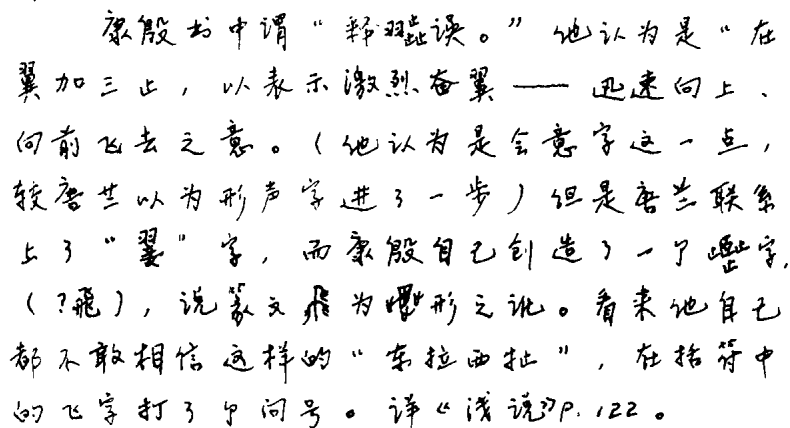 康殷书中谓“释误。”他认为是“在
翼加三止，以表示激烈奋翼——迅速向上、
向前飞去之意。（他认为是会意字这一点，
较唐兰以为形声字进了一步）但是唐兰联系
上了“翼”字，而康殷自己创造了一个字，
（？飛），说篆文飛为形之讹。看来他自己
都不敢相信这样的“东拉西扯”，在括符中
的飞字打了个问号。详《浅说》P.122。